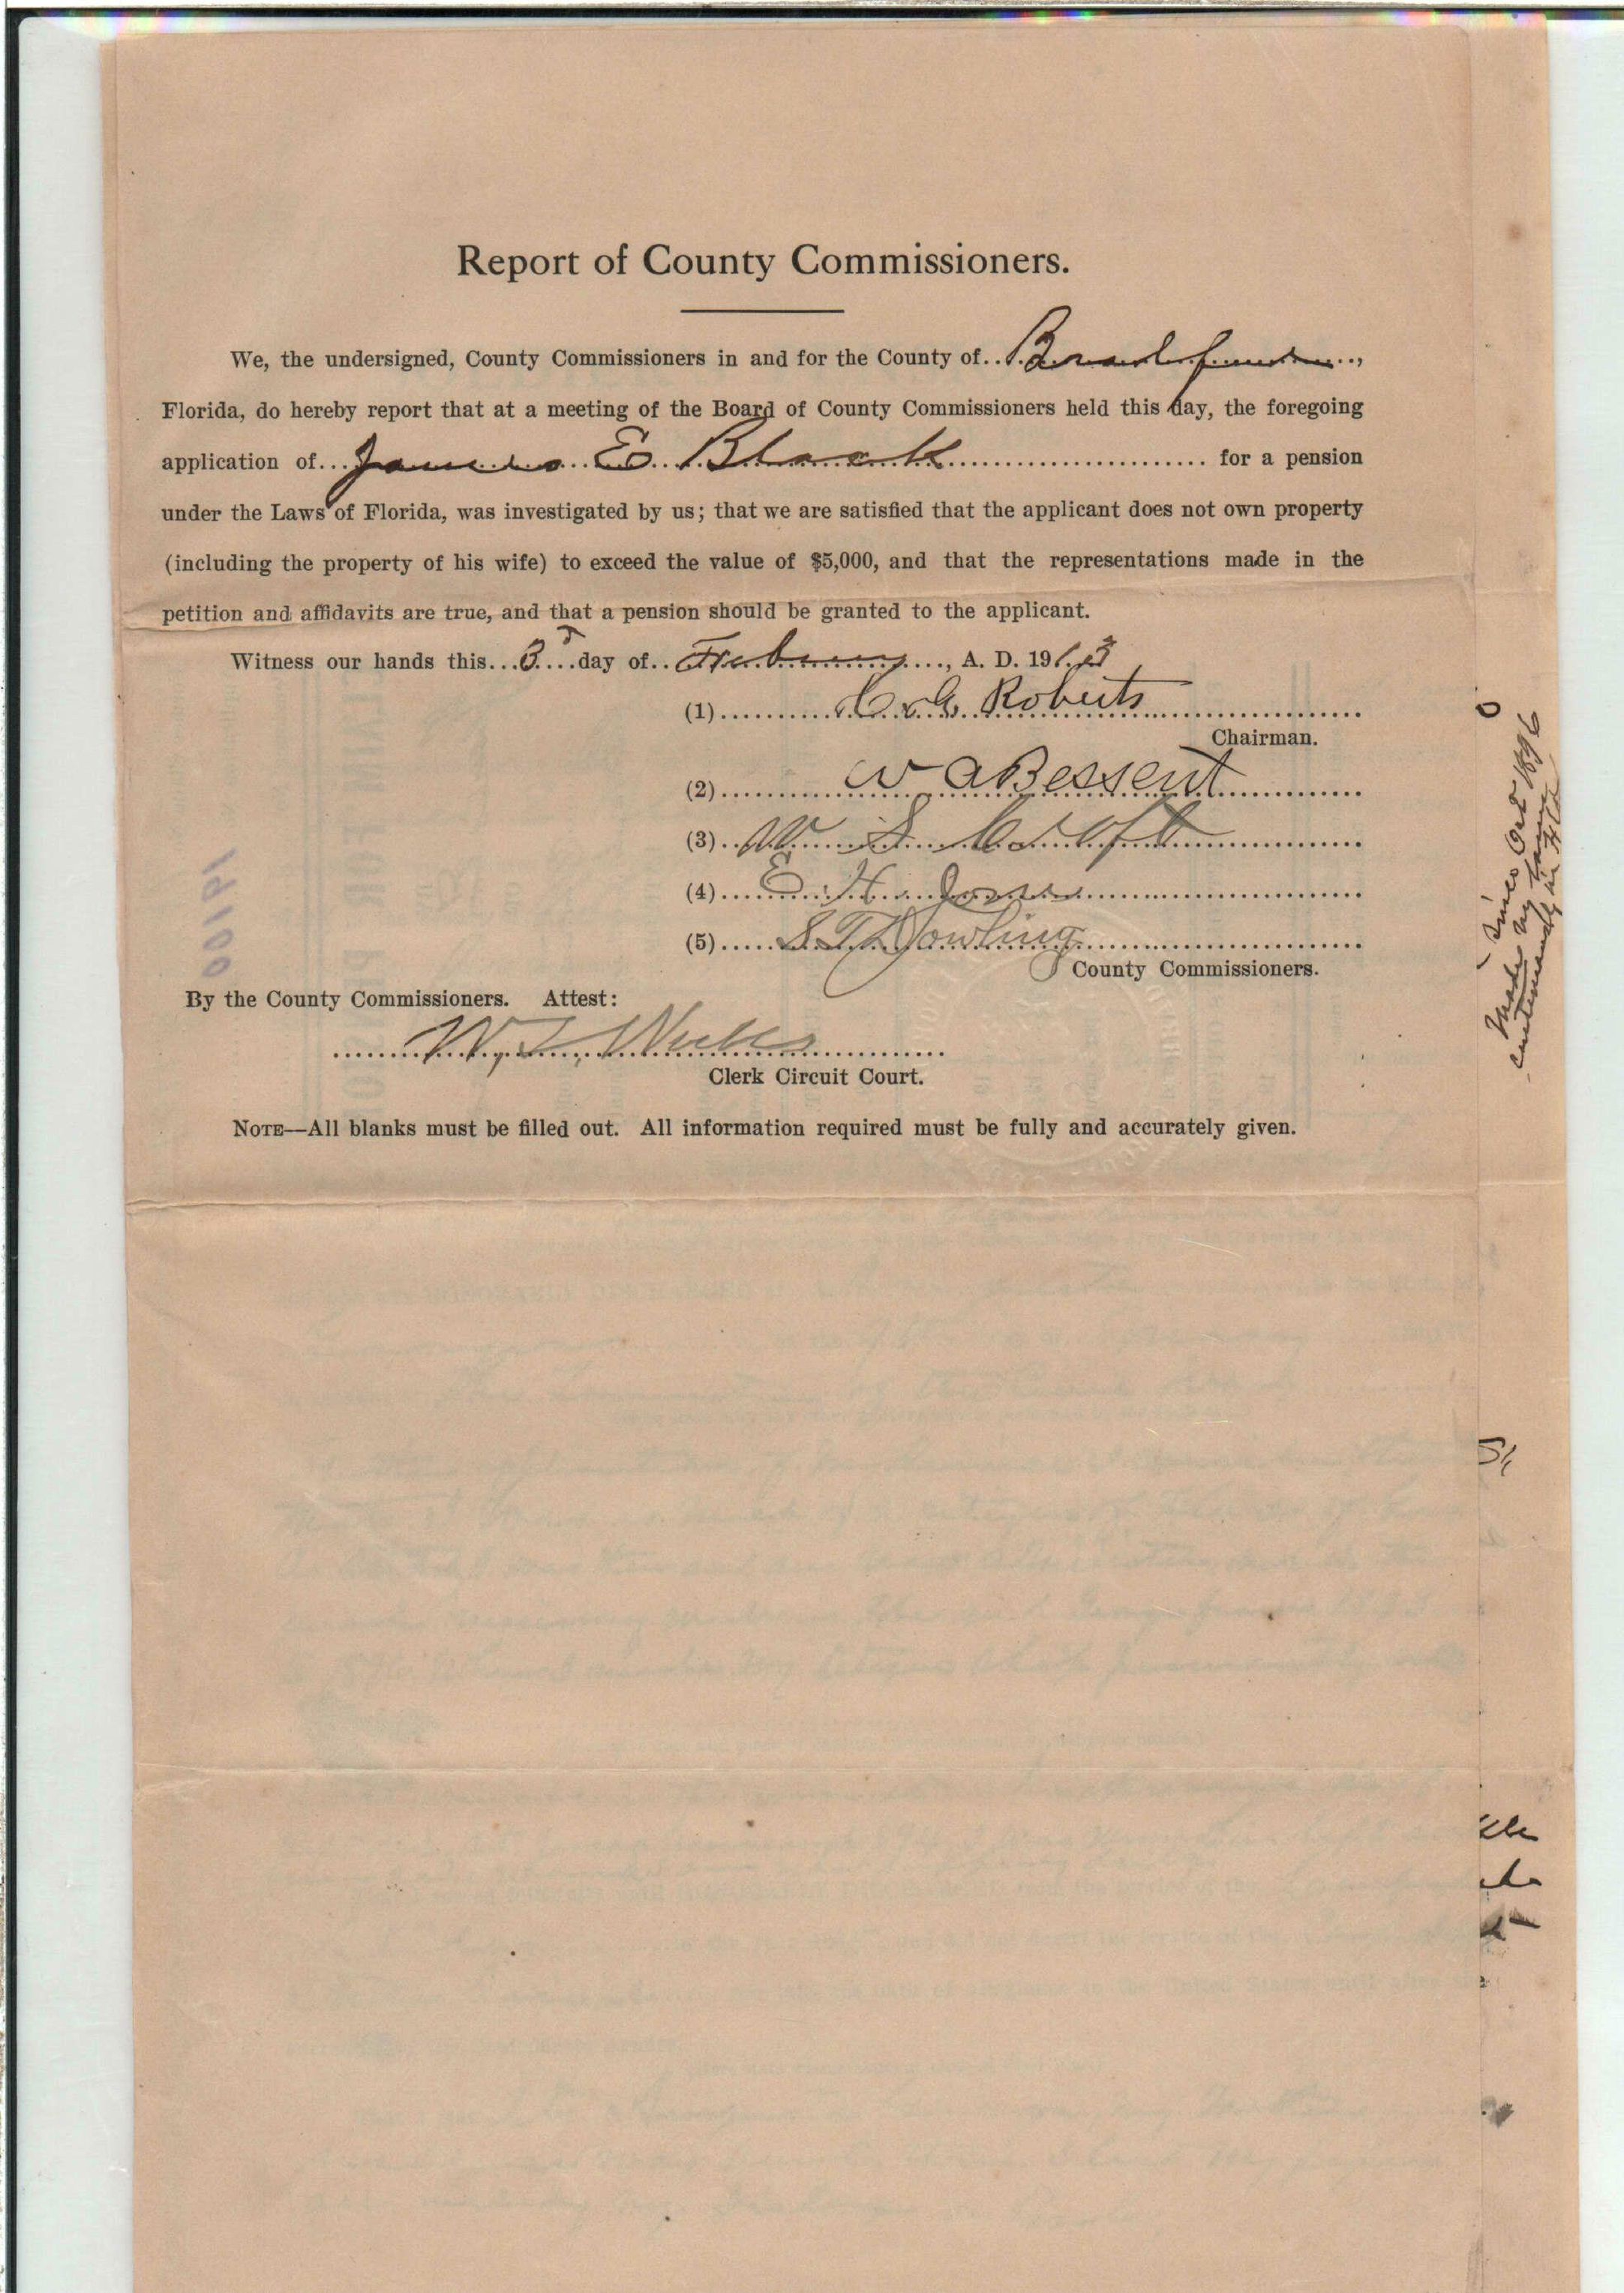 Report of County Commissioners.
We, the undersigned, County Commissioners in and for the County of Bradford,
Florida, do hereby report that at a meeting of the Board of County Commissioners held this day, the foregoing
application of James E Black for a pension
under the Laws of Florida, was investigated by us; that we are satisfied that the applicant does not own property
(including the property of his wife) to exceed the value of $5,000, and that the representations made in the
petition and affidavits are true, and that a pension should be granted to the applicant.
Witness our hands this 3 day of February, A. D. 1913
(1) C. G. Roberts
Chairman.
(2) W A Bessent
(3) W. S.
(4) E. H. Jones
(5) S T Dowling
County Commissioners.
By the County Commissioners. Attest:
Clerk Circuit Court.
NOTE—All blanks must be filled out. All information required must be fully and accurately given.
Since Oct 1896
Made my home
continuously in Fla